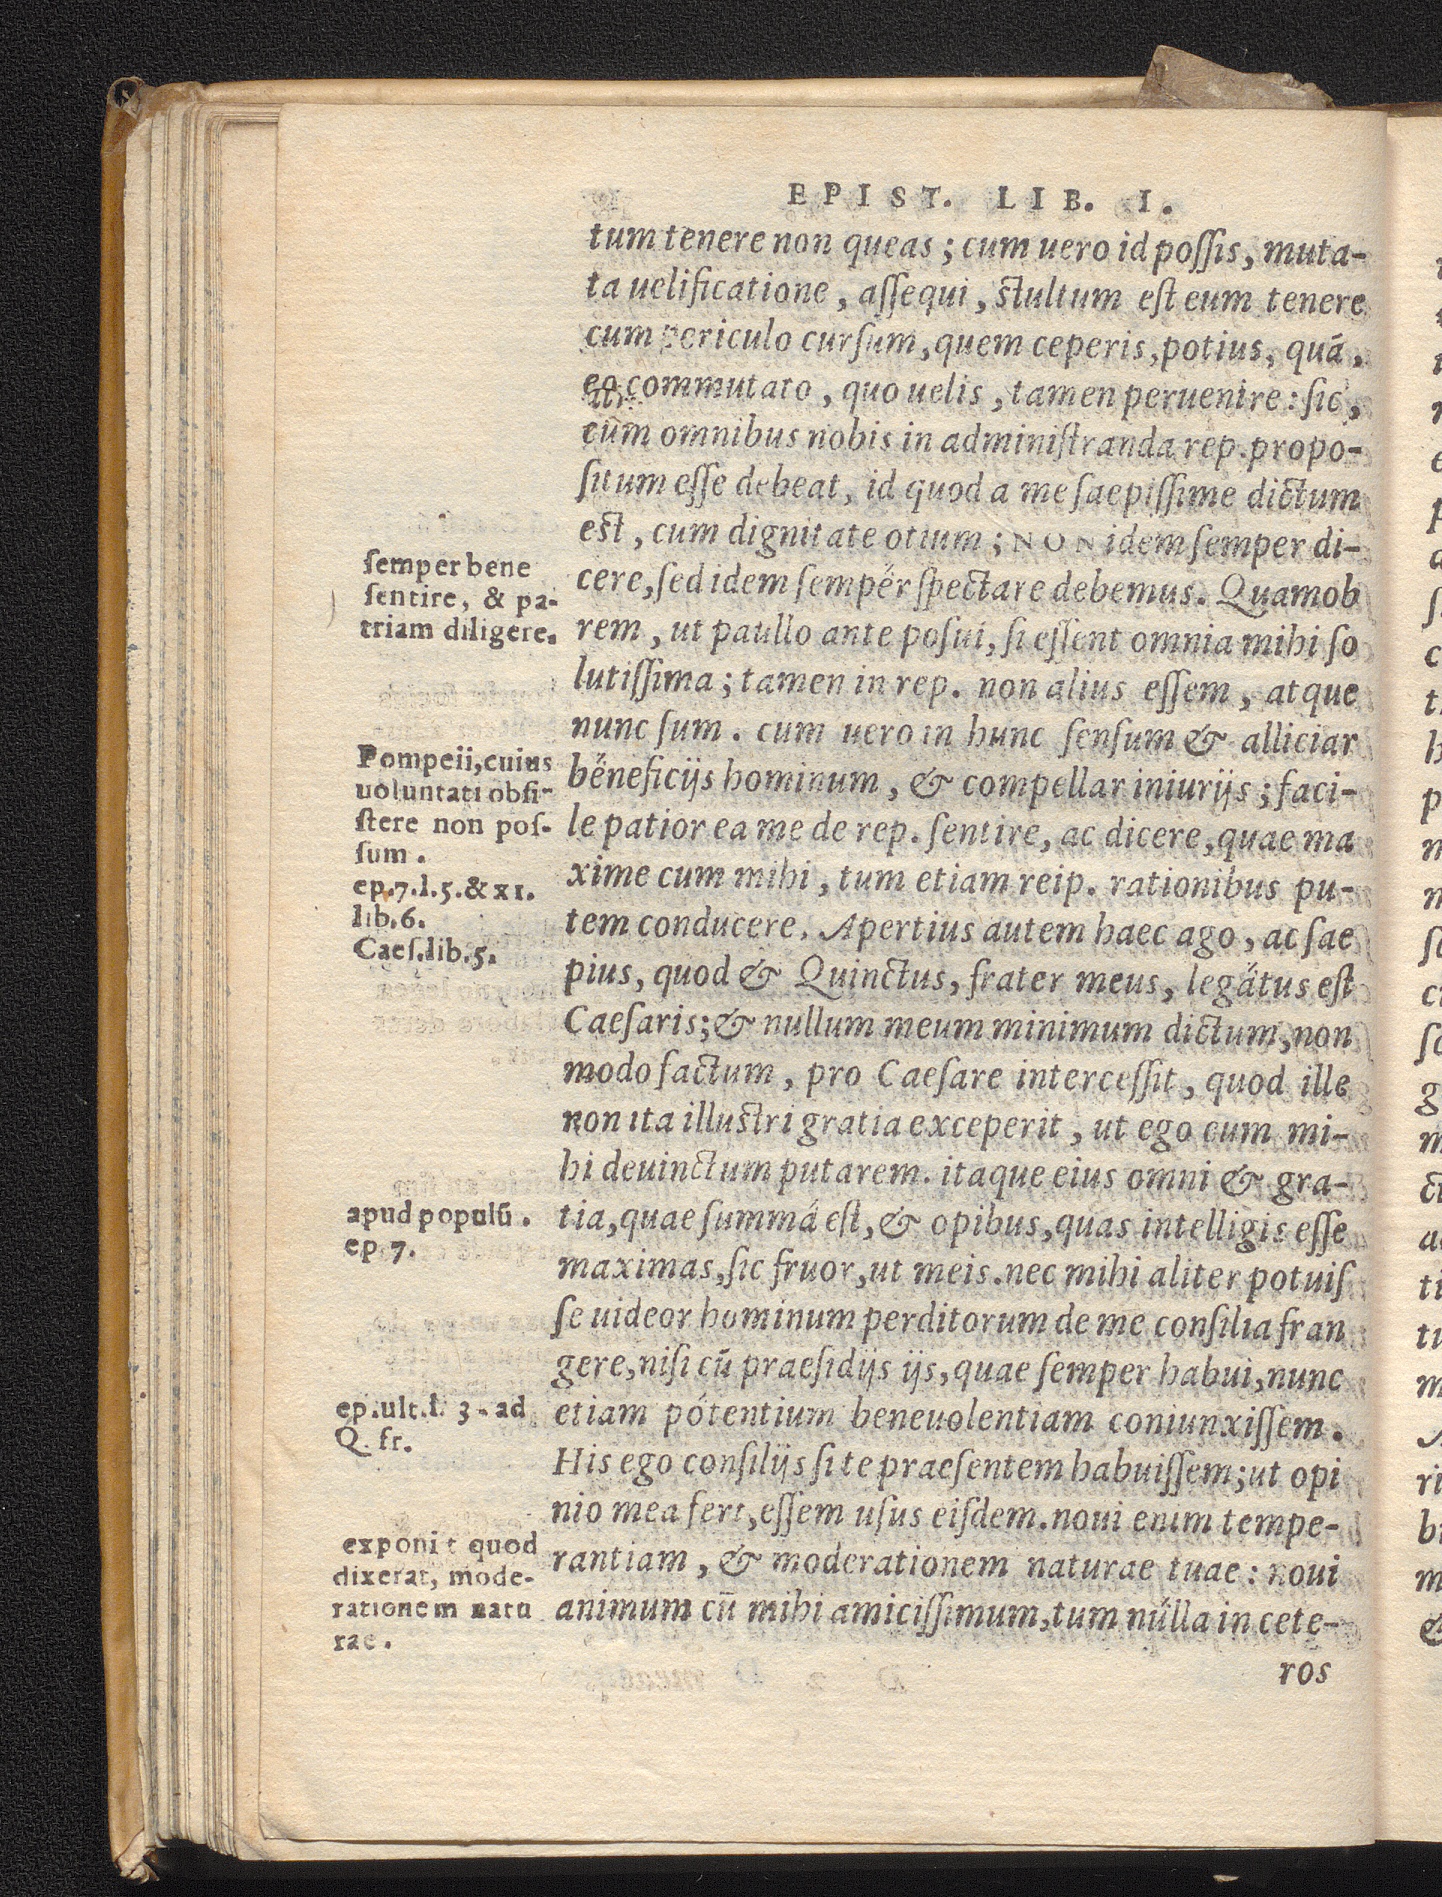 EPIST. LIB. I.
tum tenere non queas; cum uero id poſſis, muta-
ta ueliſicatione, aſſequi, ſtultum eſt eum tenere
cum periculo curſum, quem ceperis, potius, quã,
eo commutato, quo uelis, tamen peruenire: ſic,
cũm omnibus nobis in adminiſtranda rep. propo-
ſitum eſſe debeat, id quod a me ſaepiſſime dictum
eſt, cum dignitate otium; NON idem ſemper di-
cere, ſed idem ſempér ſpectare debemus. Quamob
rem, ut paullo ante poſui, ſi eſſent omnia mihi ſo
lutiſſima; tamen in rep. non alius eſſem, atque
nunc ſum. cum uero in hunc ſenſum & alliciar
béneficijs hominum, & compellar iniurijs; faci-
le patior ea me de rep. ſentire, ac dicere, quae ma
xime cum mihi, tum etiam reip. rationibus pu-
tem conducere. Apertius autem haec ago, ac ſae
pius, quod & Quinctus, frater meus, legátus eſt
Caeſaris; & nullum meum minimum dictum, non
modo factum, pro Caeſare interceſſit, quod ille
non ita illuſtri gratia exceperit, ut ego eum mi-
hi deuinctum putarem. itaque eius omni & gra-
tia, quae ſummá eſt, & opibus, quas intelligis eſſe
maximas, ſic fruor, ut meis. nec mihi aliter potuiſ
ſe uideor hominum perditorum de me conſilia fran
gere, niſi cũ praeſidijs ijs, quae ſemper habui, nunc
etiam pótentium beneuolentiam coniunxiſſem.
His ego conſilijs ſi te praeſentem habuiſſem; ut opi
nio mea fert, eſſem uſus eiſdem. noui enim tempe-
rantiam, & moderationem naturae tuae: noui
animum cũ mihi amiciſſimum, tum núlla in cete-
ros
ſemper bene
ſentire, & pa-
triam diligere.
Pompeii, cuius
uoluntati obſi-
ſtere non poſ-
ſum.
ep.7.l.5.& XI.
lib.6.
Caeſ.lib.5.
apud populũ.
ep 7.
ep.ult.l. 3. ad
Q. fr.
exponit quod
dixerat, mode-
rationem natu
rae.